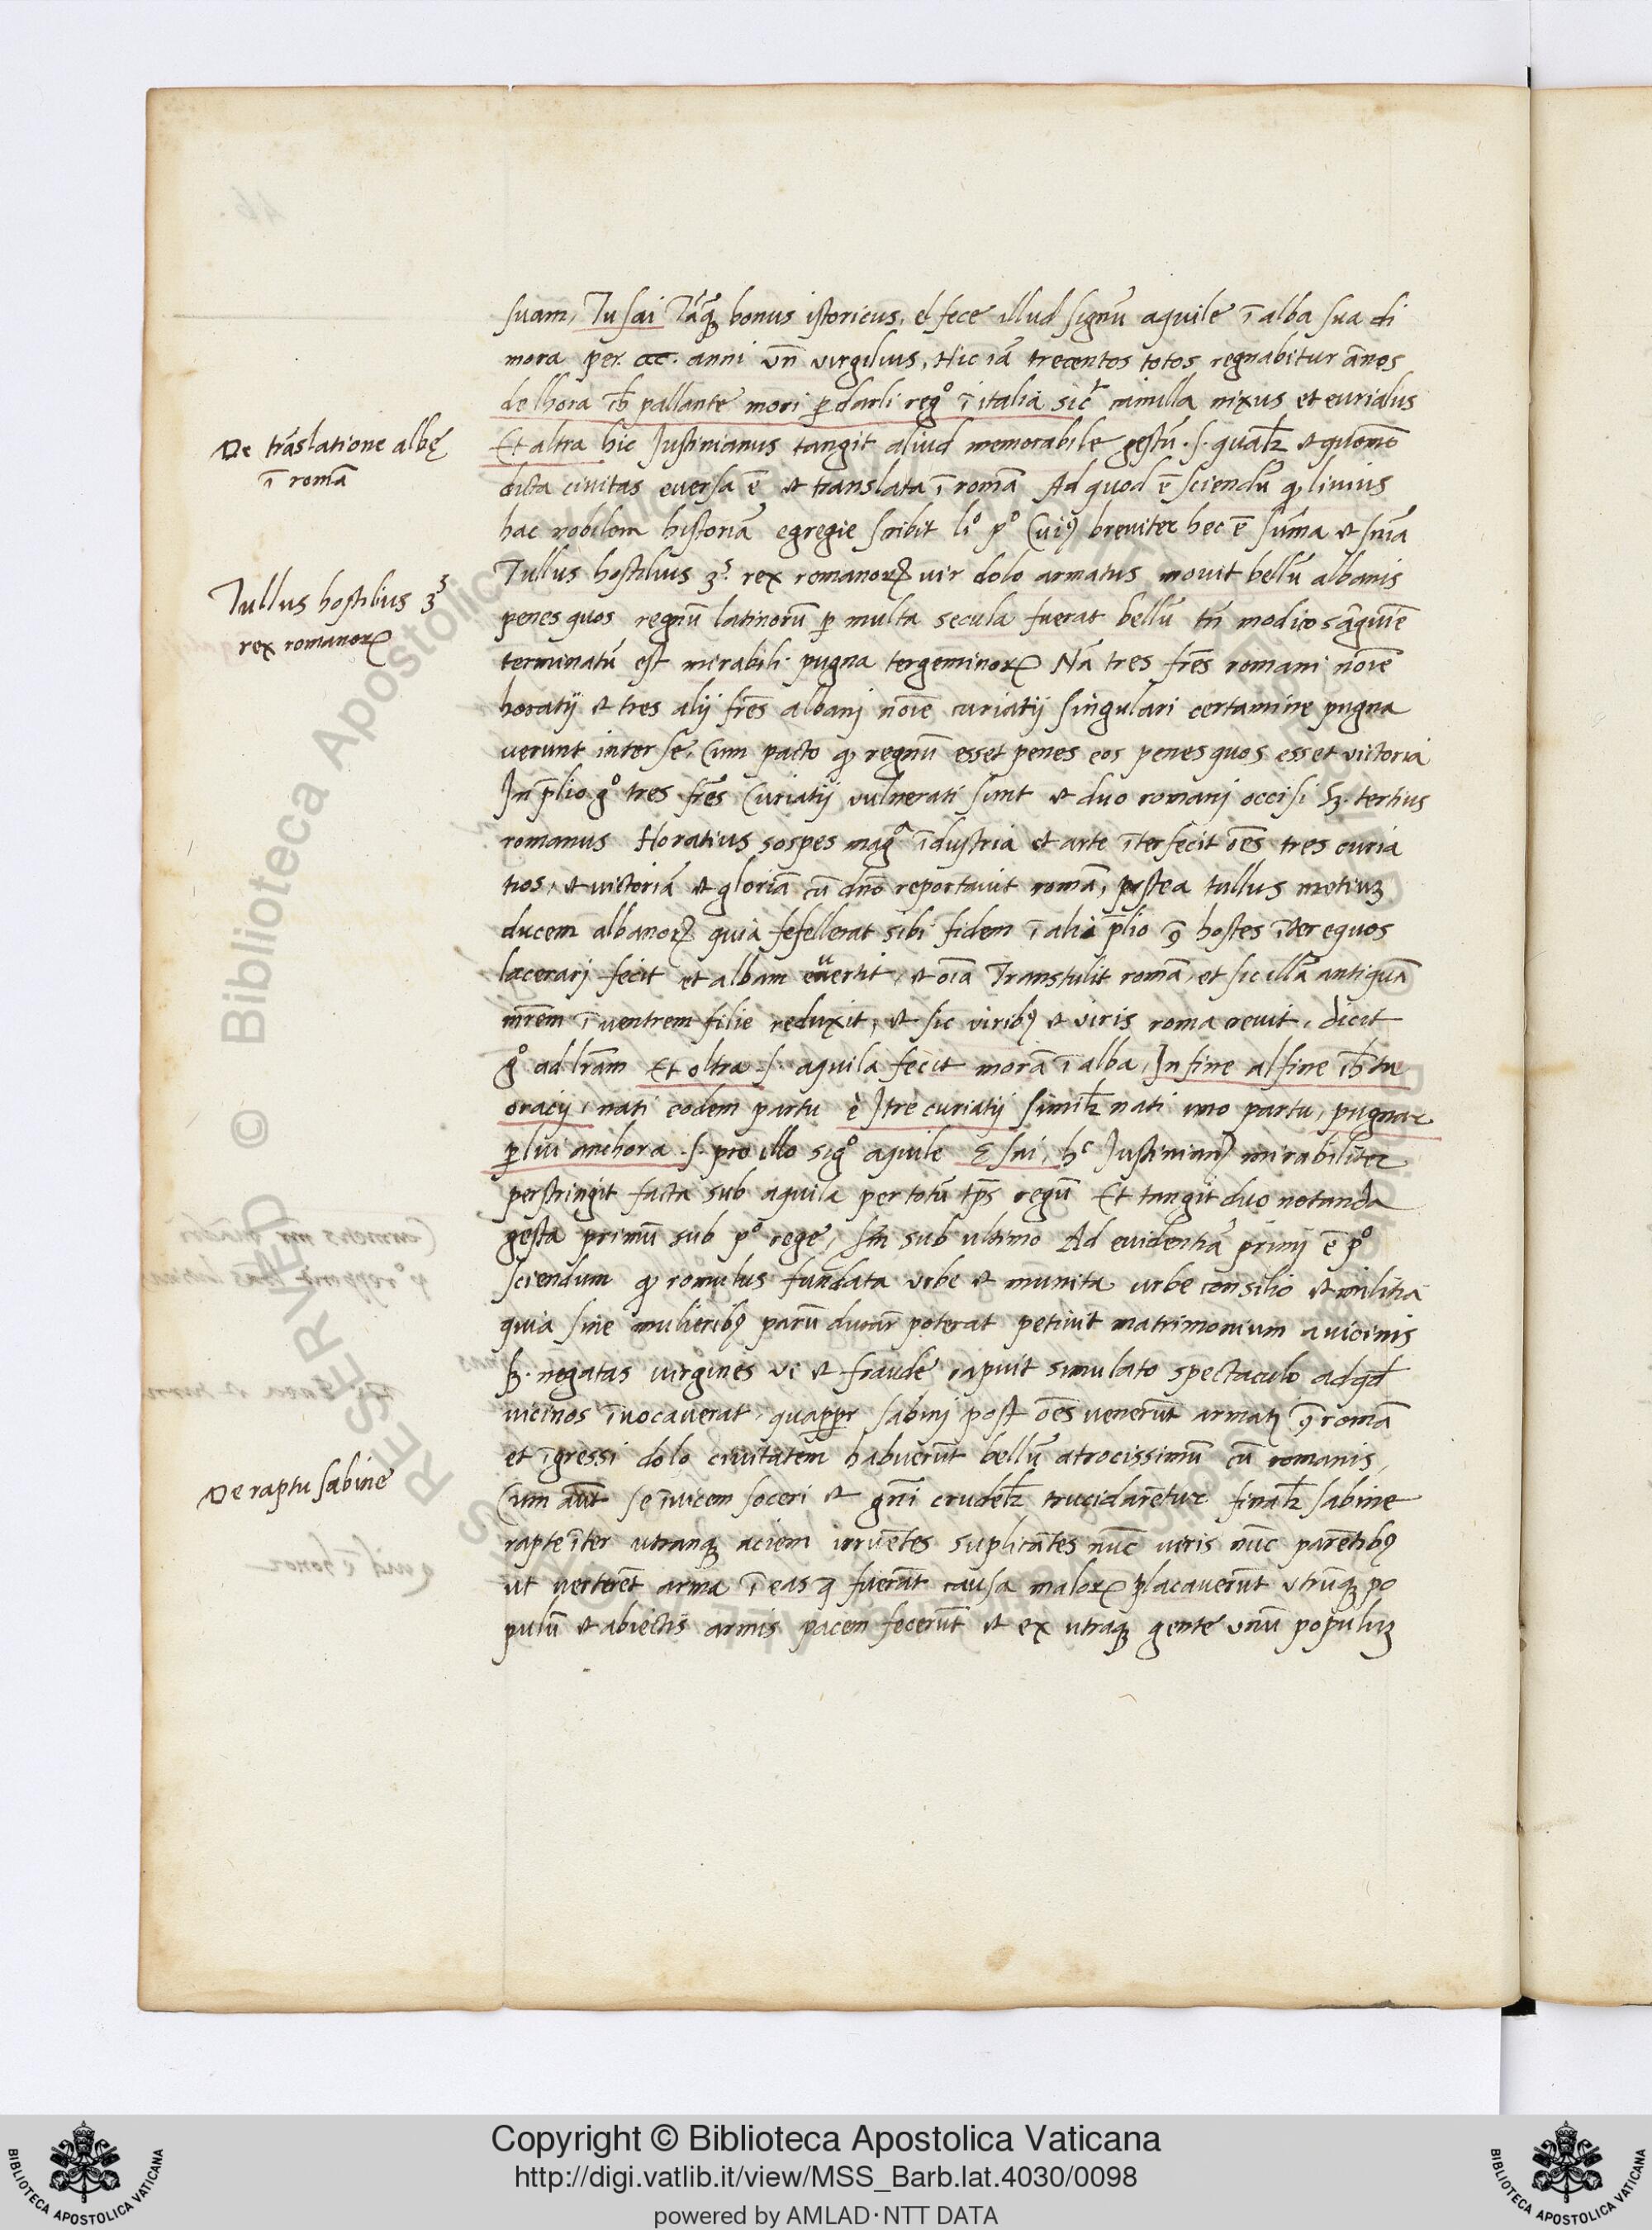 suam, Tu sai Tāq̄ʒ bonus istoricus. el fece illud signū aquile ī alba sua di
mora per. ccc. anni vn̄ virgilius, Hic iā trecentos totos regnabitur ānos
de lhora ch̄ pallante mori p̱ darli reg° ī italia sic̄ camilla nixus et eurialus
De trāslatione albę
ī romā
Et altra hic Justinianus tangit aliud memorabile gestū .s. qualr̄ & quomō
dicta civitas euersa ē & translata ī romā Ad quod ē sciendū ꝙ livius
hac nobilem historiā egregie scribit li° p° Cui9 breviter hec ē sūma & sn̄ia
Tullus hostilius 3s
rex romanorꝝ
Tullus hostilius 3s. rex romanorꝝ vir dolo armatus movit bellū albanis
penes quos regnū latinorū p̱ multa secula fuerat bellū tn̄ modico sāguīe
terminatū est mirabili pugna tergeminorꝝ Nā tres fr̄es romani noīe
horatij & tres alij fr̄es albanj noīe curiatij singulari certamine pugna
verunt inter se. Cum pacto ꝙ regnū esset penes eos penes quos esset victoria
In p̄lio g° tres fr̄es Curiatij vulnerati sunt & duo romanj occisi sʒ. tertius
romanus Horatius sospes mag̊ īdustria et arte īterfecit oēs tres curia
tios, & victoriā & gloriā cū dn̄o reportauit romā, postea tullus metiuʒ
ducem albanorꝝ quia fefellerat sibi fidem ī alio p̄lio ꝯ hostes īter equos
lacerarj fecit et albam euertit, & oīa Transtulit romā, et sic illā antiquā
mr̄em ī ventrem filie reduxit, & sic viribꝰ & viris roma crevit. dicit
g° ad lr̄am Et oltra .s. aquila fecit morā ī alba, In fine al fine ch̄ tre
oracij, nati eodem partu è I tre curiatij simil'r nati uno partu, pugnar
p̱ lui anchora .s. pro illo sig° aquile E sai, hc Justinianꝰ mirabiliter
perstringit facta sub aquila per totū tp̄s regū Et tangit duo notanda
gesta primū sub p° rege, sm̄ sub ultimo Ad evidentiā primj ē p°
sciendum ꝙ romulus fundata urbe & munita urbe consilio & militia
quia sine mulieribꝰ parū durar̄ poterat petivit matrimonium a vicinis
sʒ. negatas virgines vi & fraude rapuit simulato spectaculo ad qd̄
vicinos īvocaverat, quapp̱r sabinj post oēs venerūt armati ꝯ romā
De raptu sabine
et īgressi dolo civitatem habuerūt bellū atrocissimū cū romanis,
Cum aut̄ se īvicem soceri & gn̄i crudelr̄ trucidarētur finalr̄ sabine
rapte īter utranqʒ aciem irruētes suplicātes nūc viris nūc parētibꝰ
ut verterēt arma ī eas q̄ fuerāt causa malorꝝ placaverūt utrūqʒ po
pulū & abiectis armis pacem fecerūt & ex utraqʒ gente unū populuʒ
Copyright © Biblioteca Apostolica Vaticana
http://digi.vatlib.it/view/MSS_Barb.lat.4030/0098
powered by AMLAD·NTT DATA
BIBLIOTECA APOSTOLICA VATICANA
BIBLIOTECA APOSTOLICA VATICANA